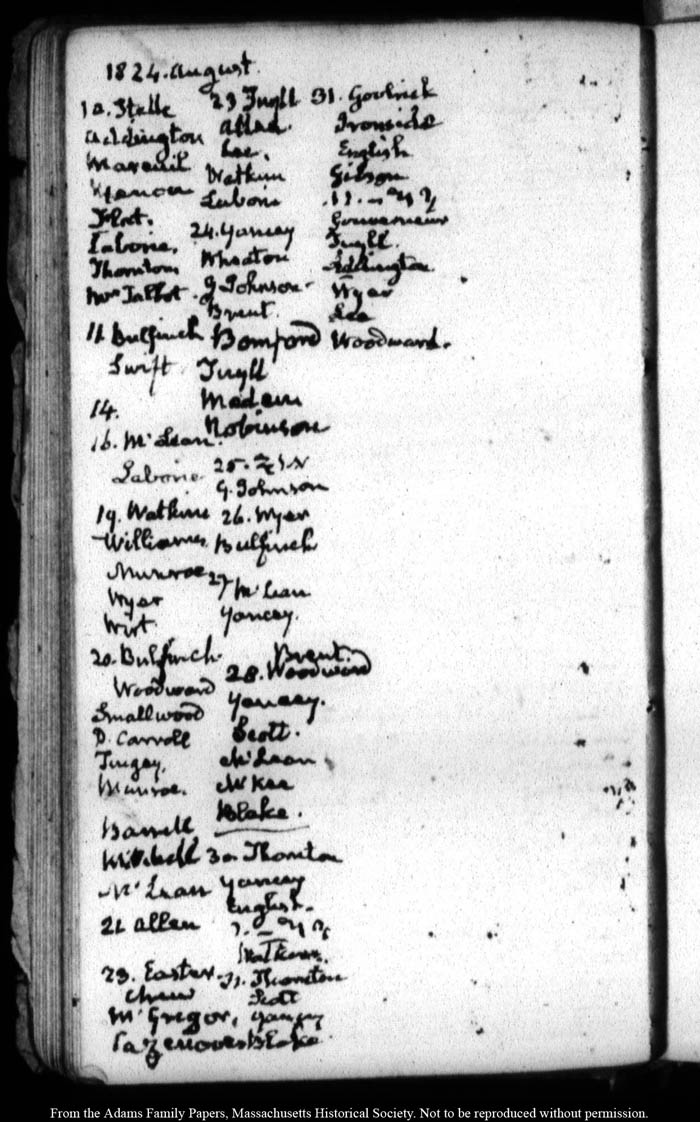 1824. August.
10. Stalle
Addington
Mareuil
Menou
Laborie,
Thornton
Mrs Talbot.
11. Bulfinch
Swift
14.
16. McLean.
Laborie
19. Watkins
Williams
Munroe
Wyer
Wirt.
20. Bulfinch.
Woodward
Smallwood
D. Carroll
Tingey,
Munroe.
Barrell
Mitchell
McLean
21 Allen
23. Easter
Chew
McGregor,
Cazenove
23 Tuyll
Allen.
Lee,
Watkins
Laborie
24. Yancey
Wheaton
G Johnson
Brent.
Bomford
Tuyll
Madam
Robinson
25.
G. Johnson
26. Wyer
Bulfinch
27 McLean
Yancey.
Brent.
28. Woodward
Yancey.
Scott.
McLean
McKee
Blake.
30. Thornton
Yancey
English.
Watkins.
31. Thornton
Scott
Yancey
Blake
31. Goolrick
Ironside
English
Gibson
Gouverneur
Tuyll.
Addington
Wyer
Lee
Woodward.
From the Adams Family Papers, Massachusetts Historical Society. Not to be reproduced without permission.